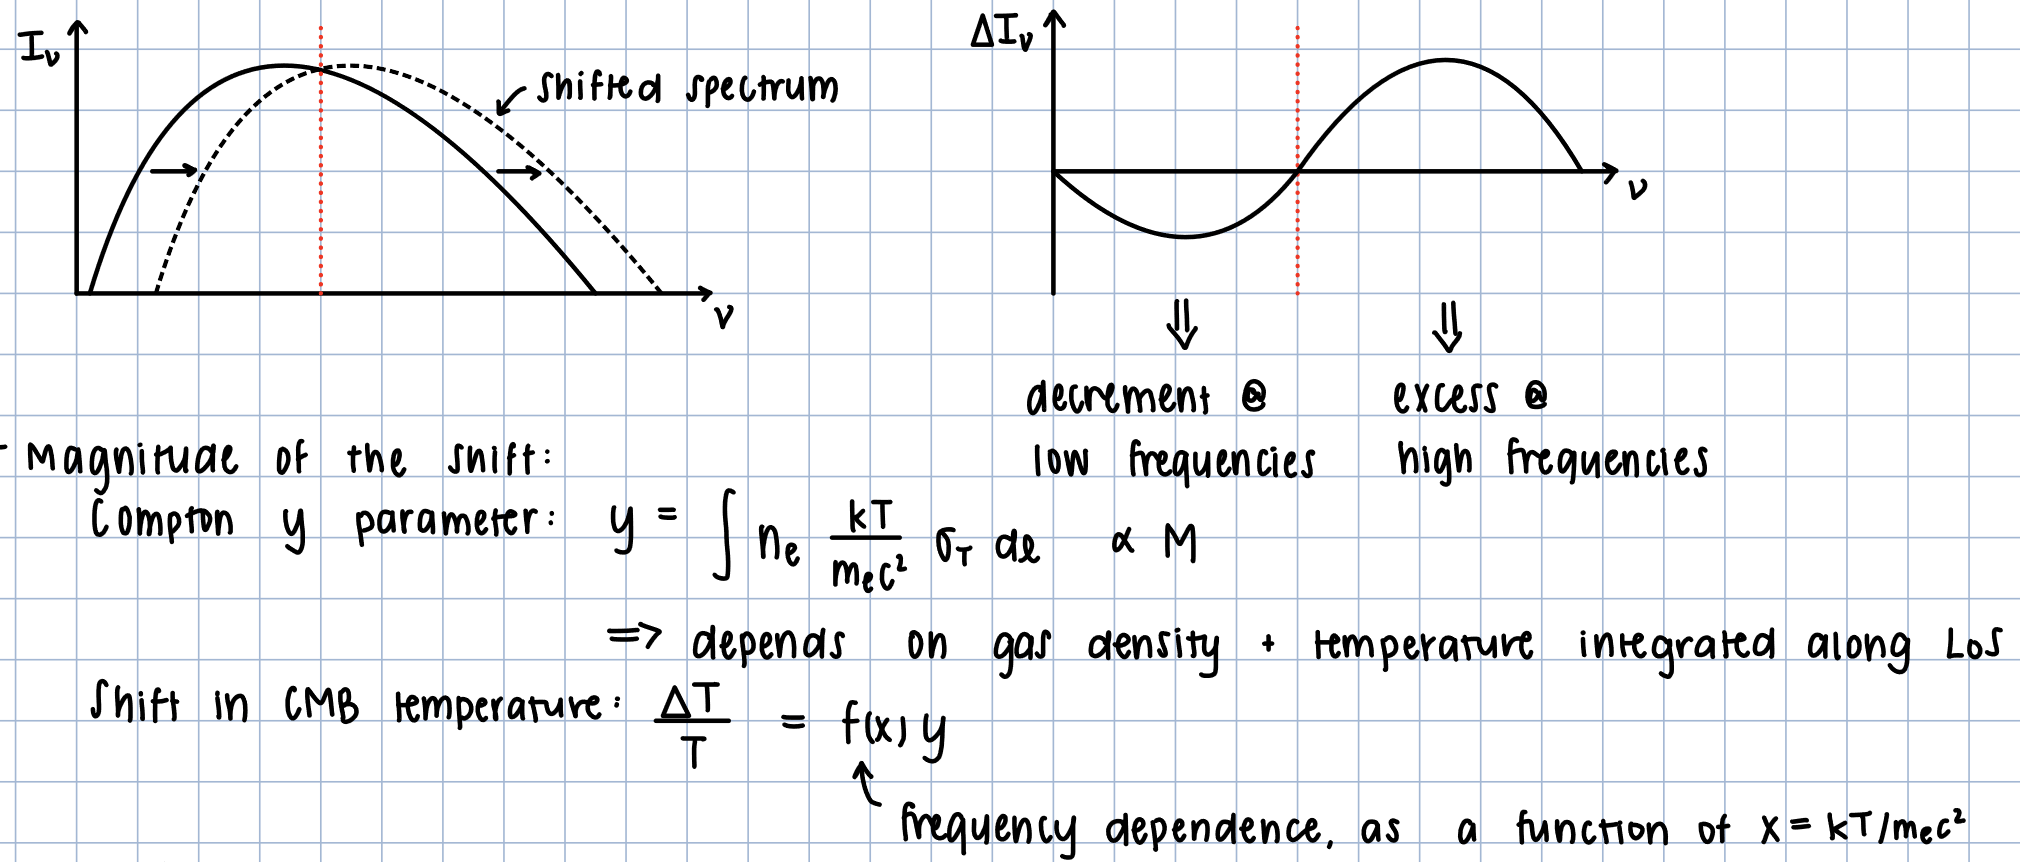 I_ν
shifted spectrum
ν
ΔI_ν
ν
decrement @
low frequencies
excess @
high frequencies
- Magnitude of the shift:
Compton y parameter: y = ∫ n_e kT/m_ec² σ_T dℓ ∝ M
⇒ depends on gas density + temperature integrated along LoS
Shift in CMB temperature: ΔT/T = f(x) y
frequency dependence, as a function of x = kT/m_ec²